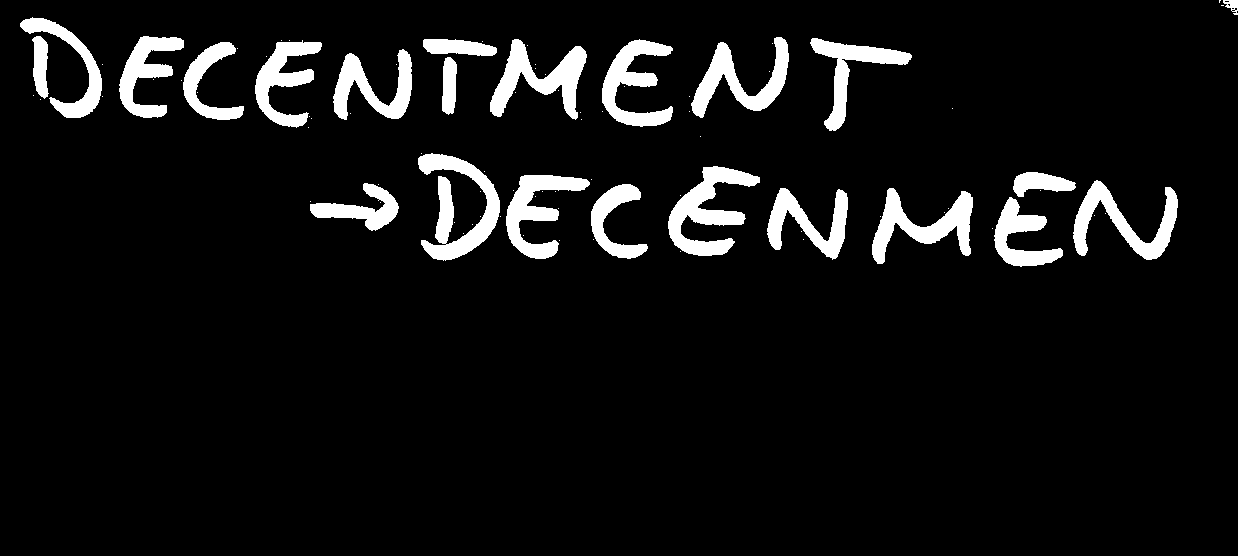 DECENTMENT
→DECENMEN